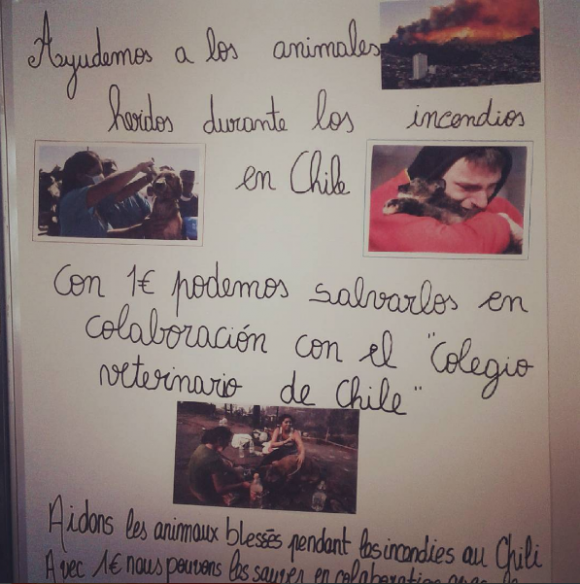 Ayudemos a los animales
heridos durante los incendios
en Chile
Con 1€ podemos salvarlos en
colaboración con el "Colegio
veterinario de Chile"
Aidons les animaux blessés pendant les incendies au Chili
Avec 1€ nous pouvons les sauver en collaboration